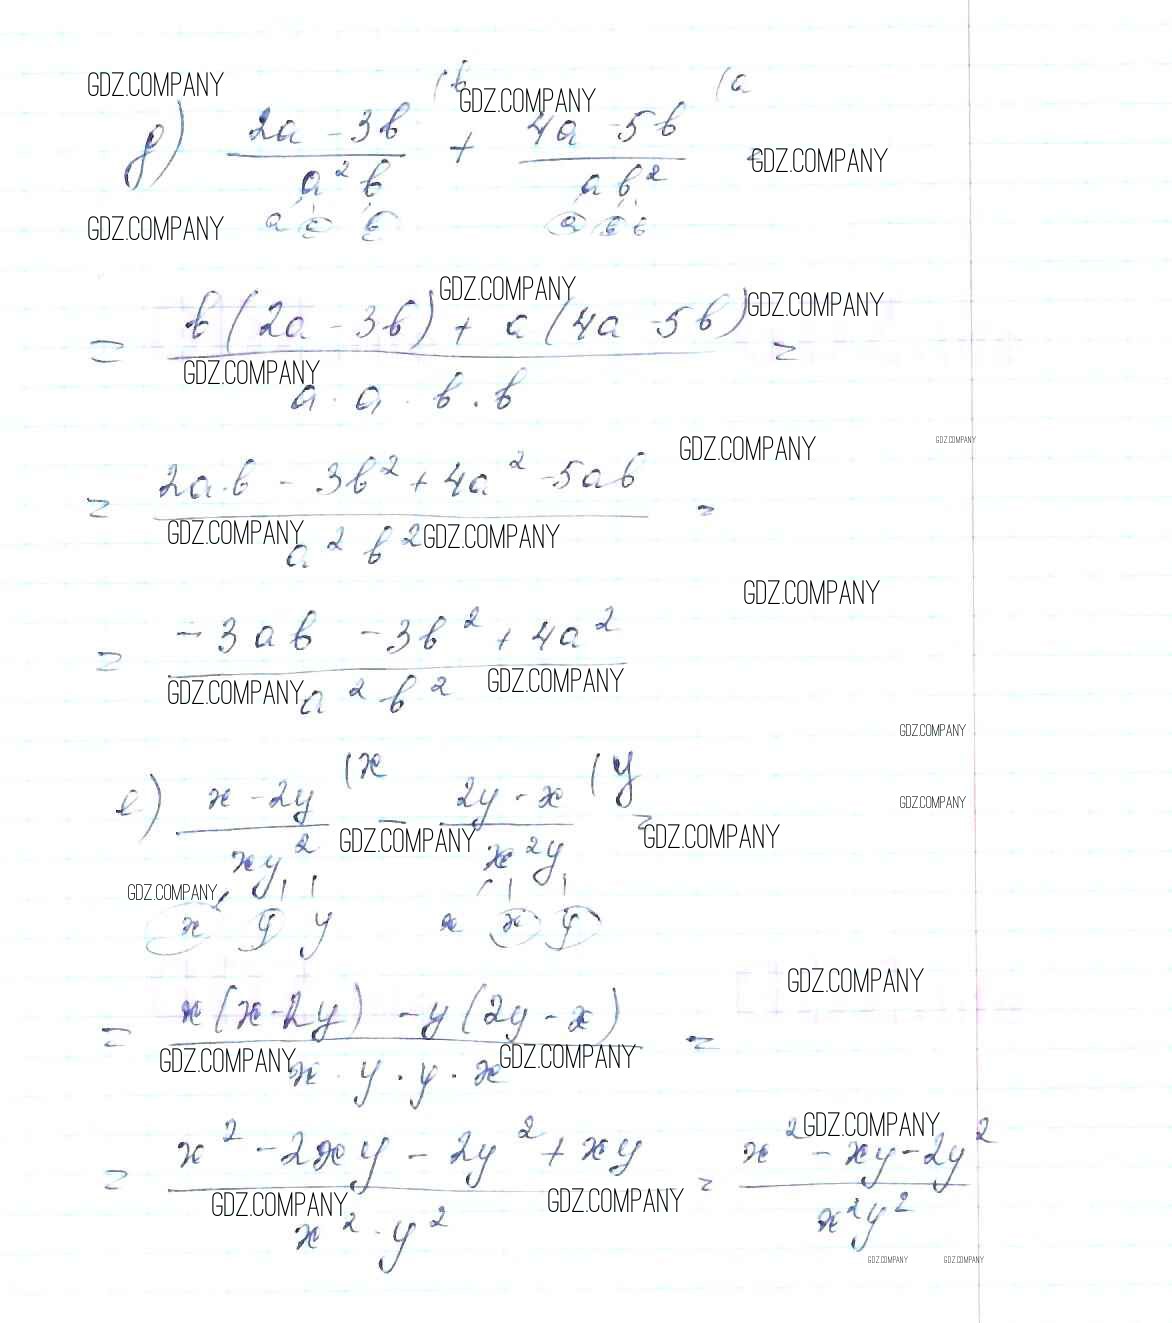 GDZ.COMPANY (b GDZ.COMPANY (a
д) (2a - 3b)/(a²b) + (4a - 5b)/(ab²) = GDZ.COMPANY
GDZ.COMPANY a a b a b b
GDZ.COMPANY
= (b(2a - 3b) + a(4a - 5b))/(a · a · b · b) = GDZ.COMPANY
GDZ.COMPANY
GDZ.COMPANY GDZ.COMPANY
= (2a·b - 3b² + 4a² - 5ab)/(a²b²) =
GDZ.COMPANY GDZ.COMPANY
GDZ.COMPANY
= (-3ab - 3b² + 4a²)/(a²b²)
GDZ.COMPANY GDZ.COMPANY
GDZ.COMPANY
(x (y
е) (x - 2y)/(xy²) - (2y - x)/(x²y) =
GDZ.COMPANY
GDZ.COMPANY GDZ.COMPANY
GDZ.COMPANY
x y y x x y
GDZ.COMPANY
= (x(x - 2y) - y(2y - x))/(x · y · y · x) =
GDZ.COMPANY GDZ.COMPANY
GDZ.COMPANY
= (x² - 2xy - 2y² + xy)/(x² · y²) = (x² - xy - 2y²)/(x²y²)
GDZ.COMPANY GDZ.COMPANY
GDZ.COMPANY GDZ.COMPANY